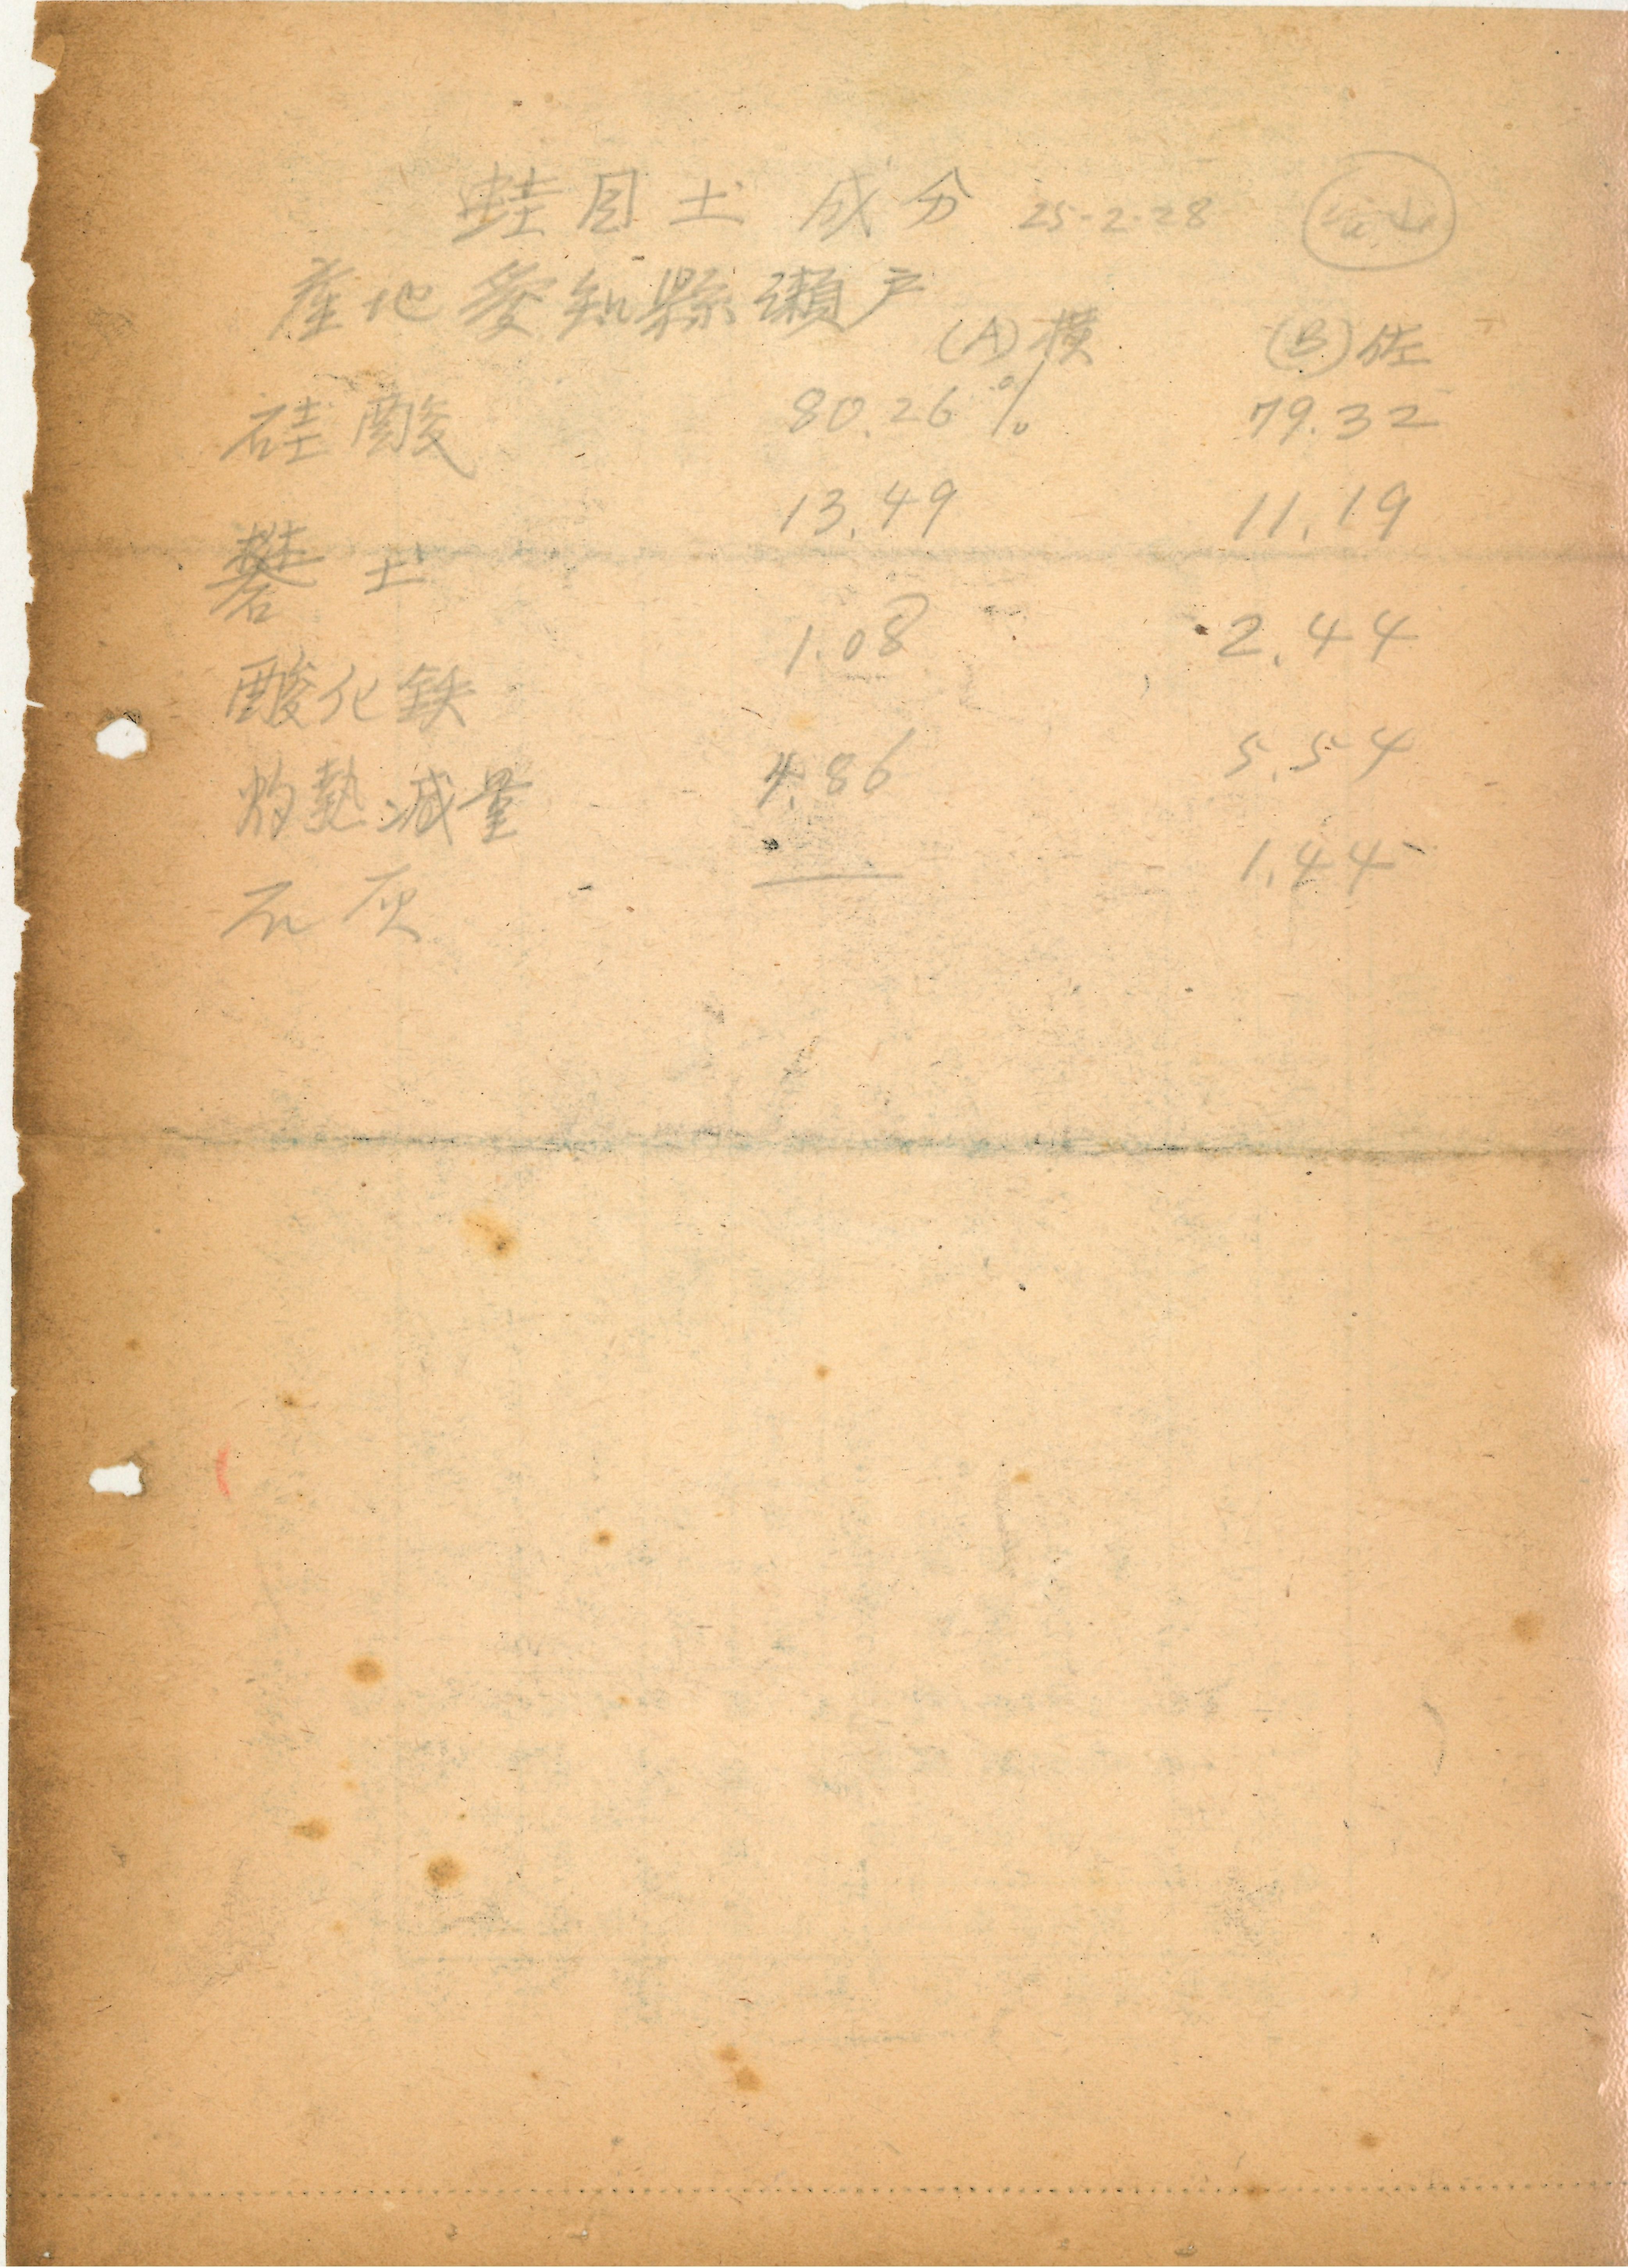 蛙目土 成分 25-2-28
産地愛知縣瀬戸
(A)横 (B)佐
硅酸 80.26% 79.32
礬土 13.49 11.19
酸化鉄 1.08 2.44
灼熱減量 4.86 5.54
石灰 — 1.44